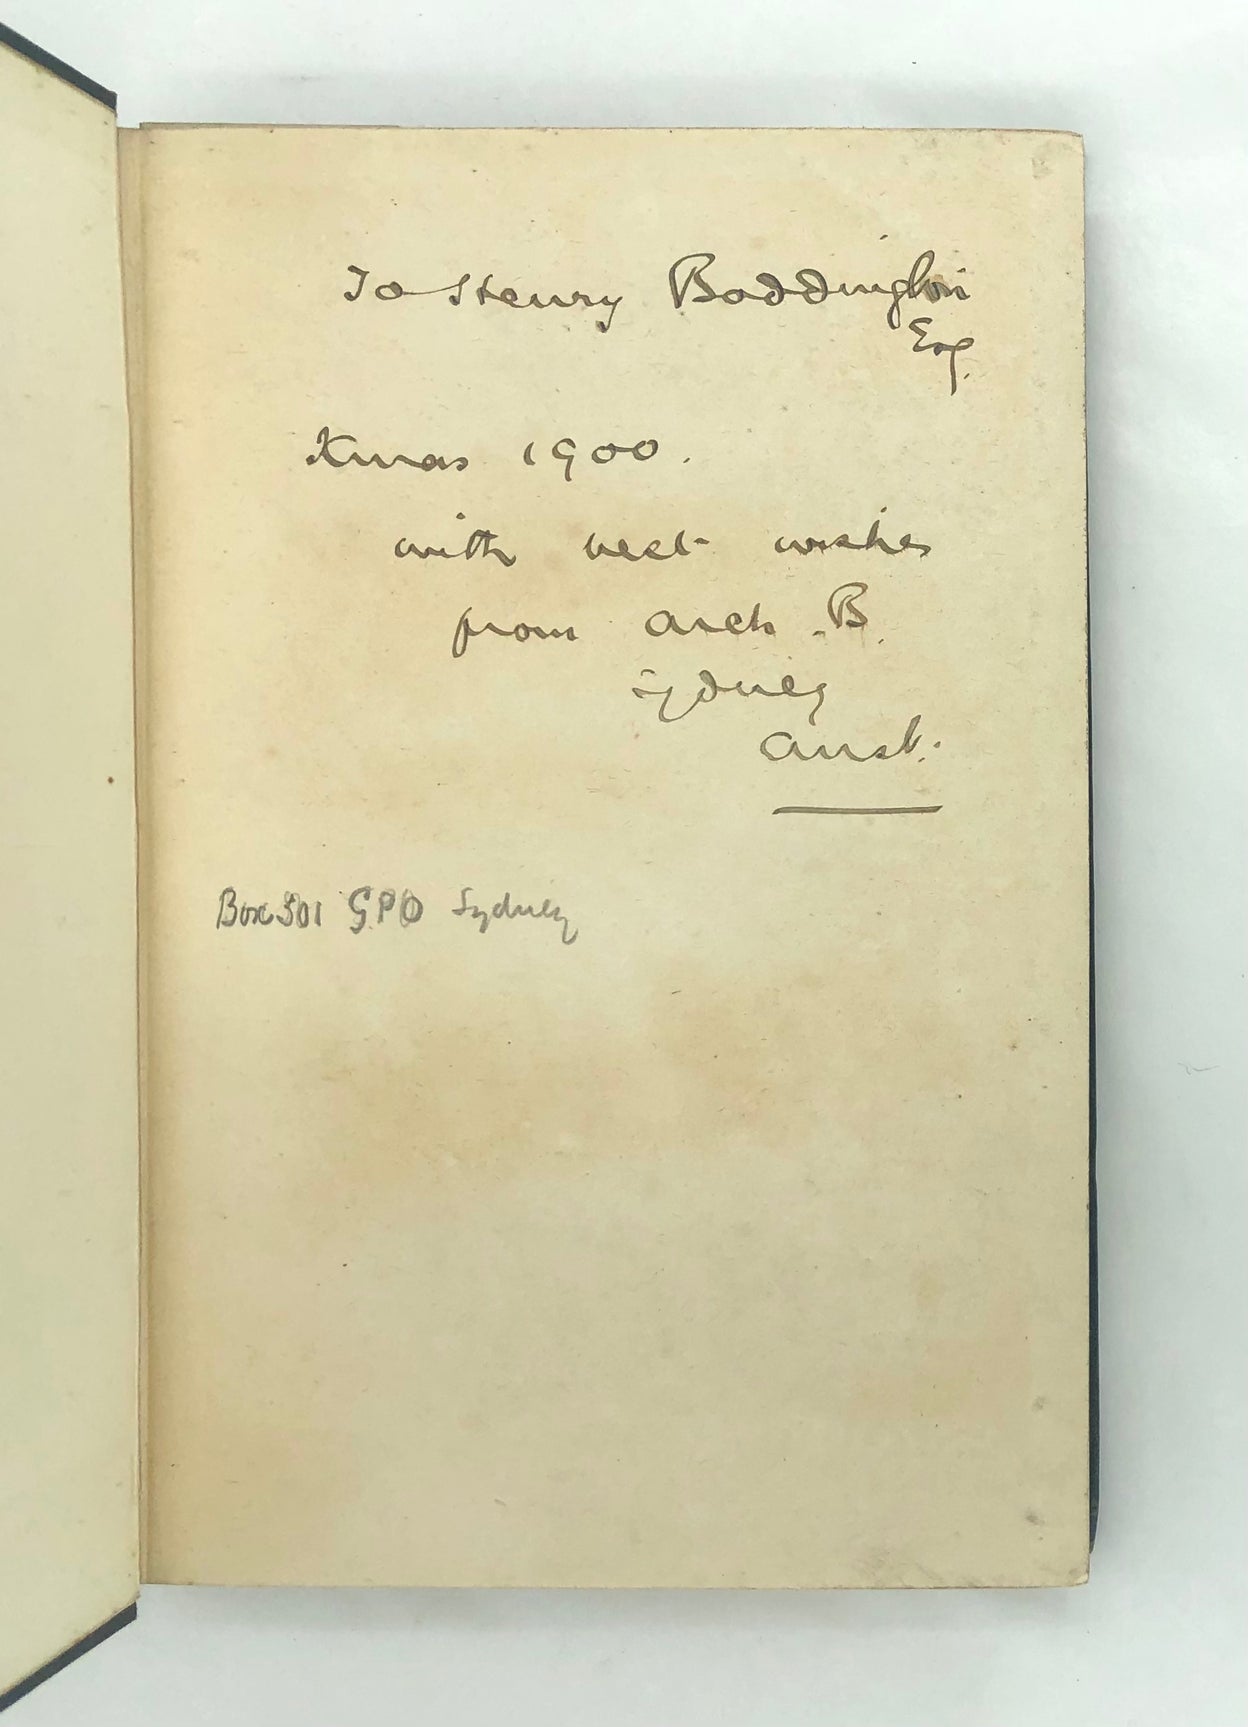 To Henry Boddington
Esq.
Xmas 1900.
with best wishes
from Arch. B.
Sydney
Aust.
Box 501 GPO Sydney